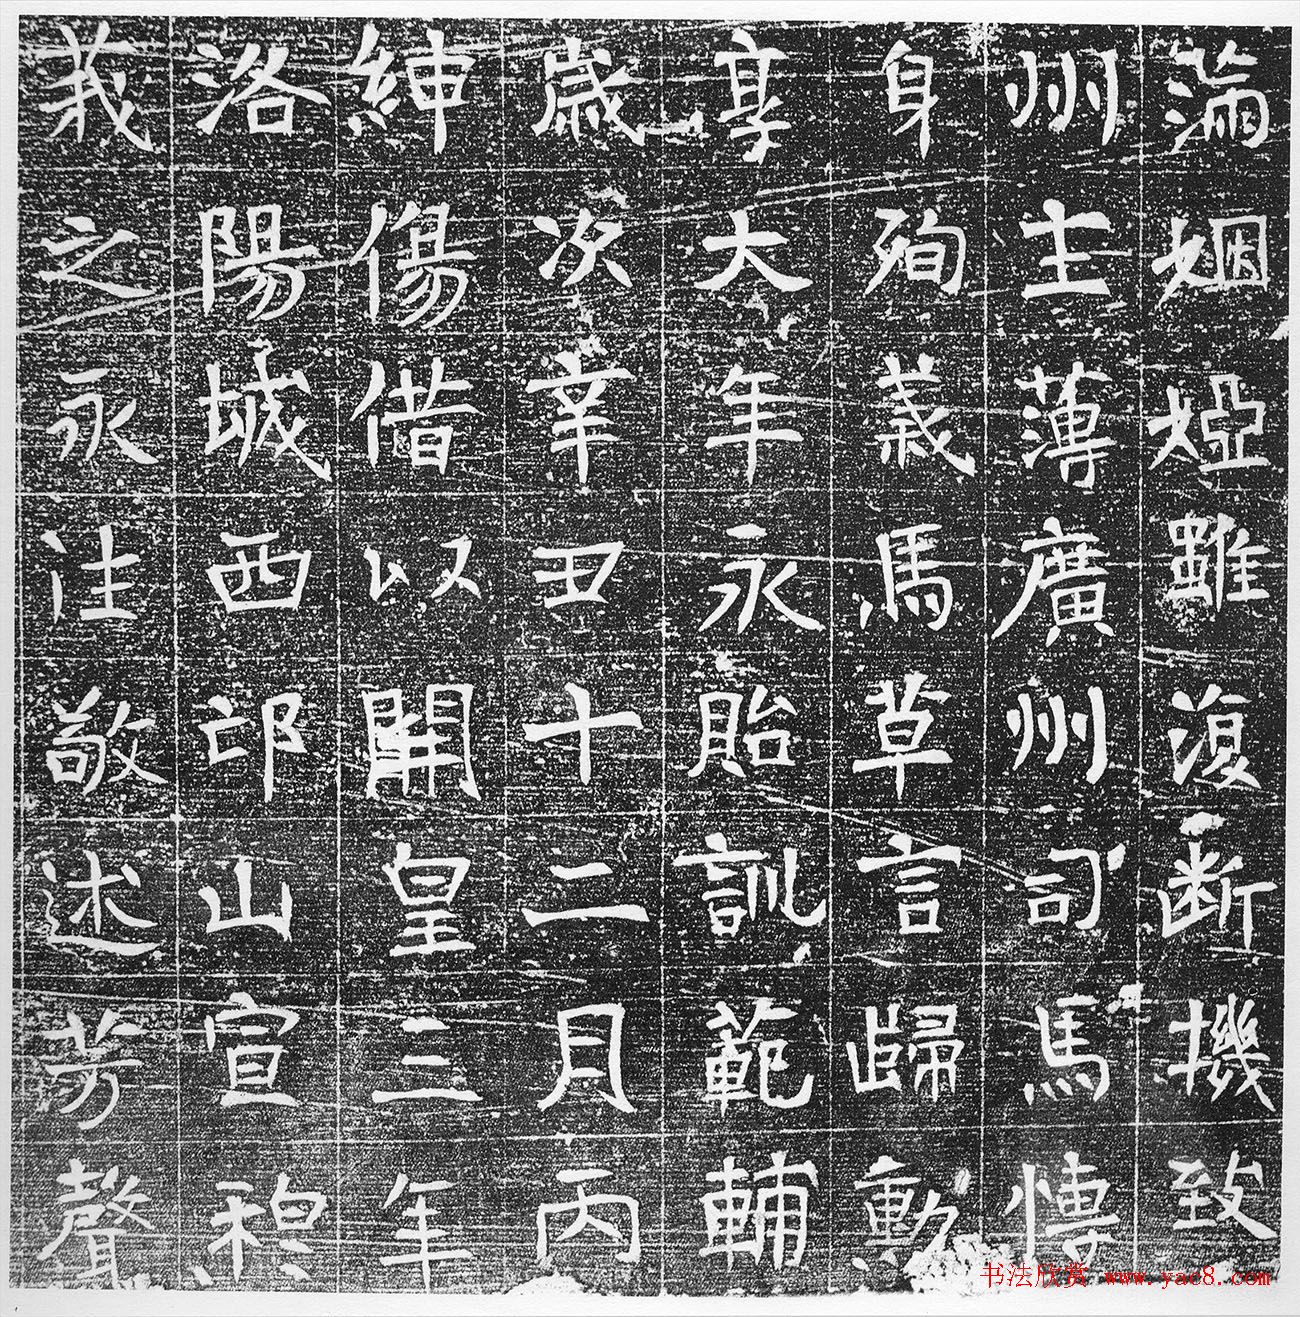 蒲姻婭雖復斷機致
州主薄廣州司馬慱
身殉義馬草言歸勳
享大年永貽訓範輔
歲次辛丑十二月丙
紳傷借以開皇三年
洛陽城西邙山宣穆
義之永注敬述芳聲
书法欣赏 www.yac8.com